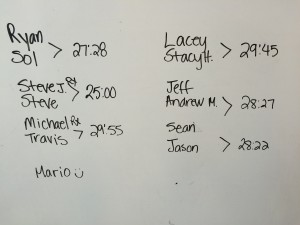 Ryan
Sol > 27:28
Steve J. Rx
Steve > 25:00
Michael Rx
Travis > 29:55
Mario
Lacey
Stacy H. > 29:45
Jeff
Andrew M. > 28:27
Sean
Jason > 28:22